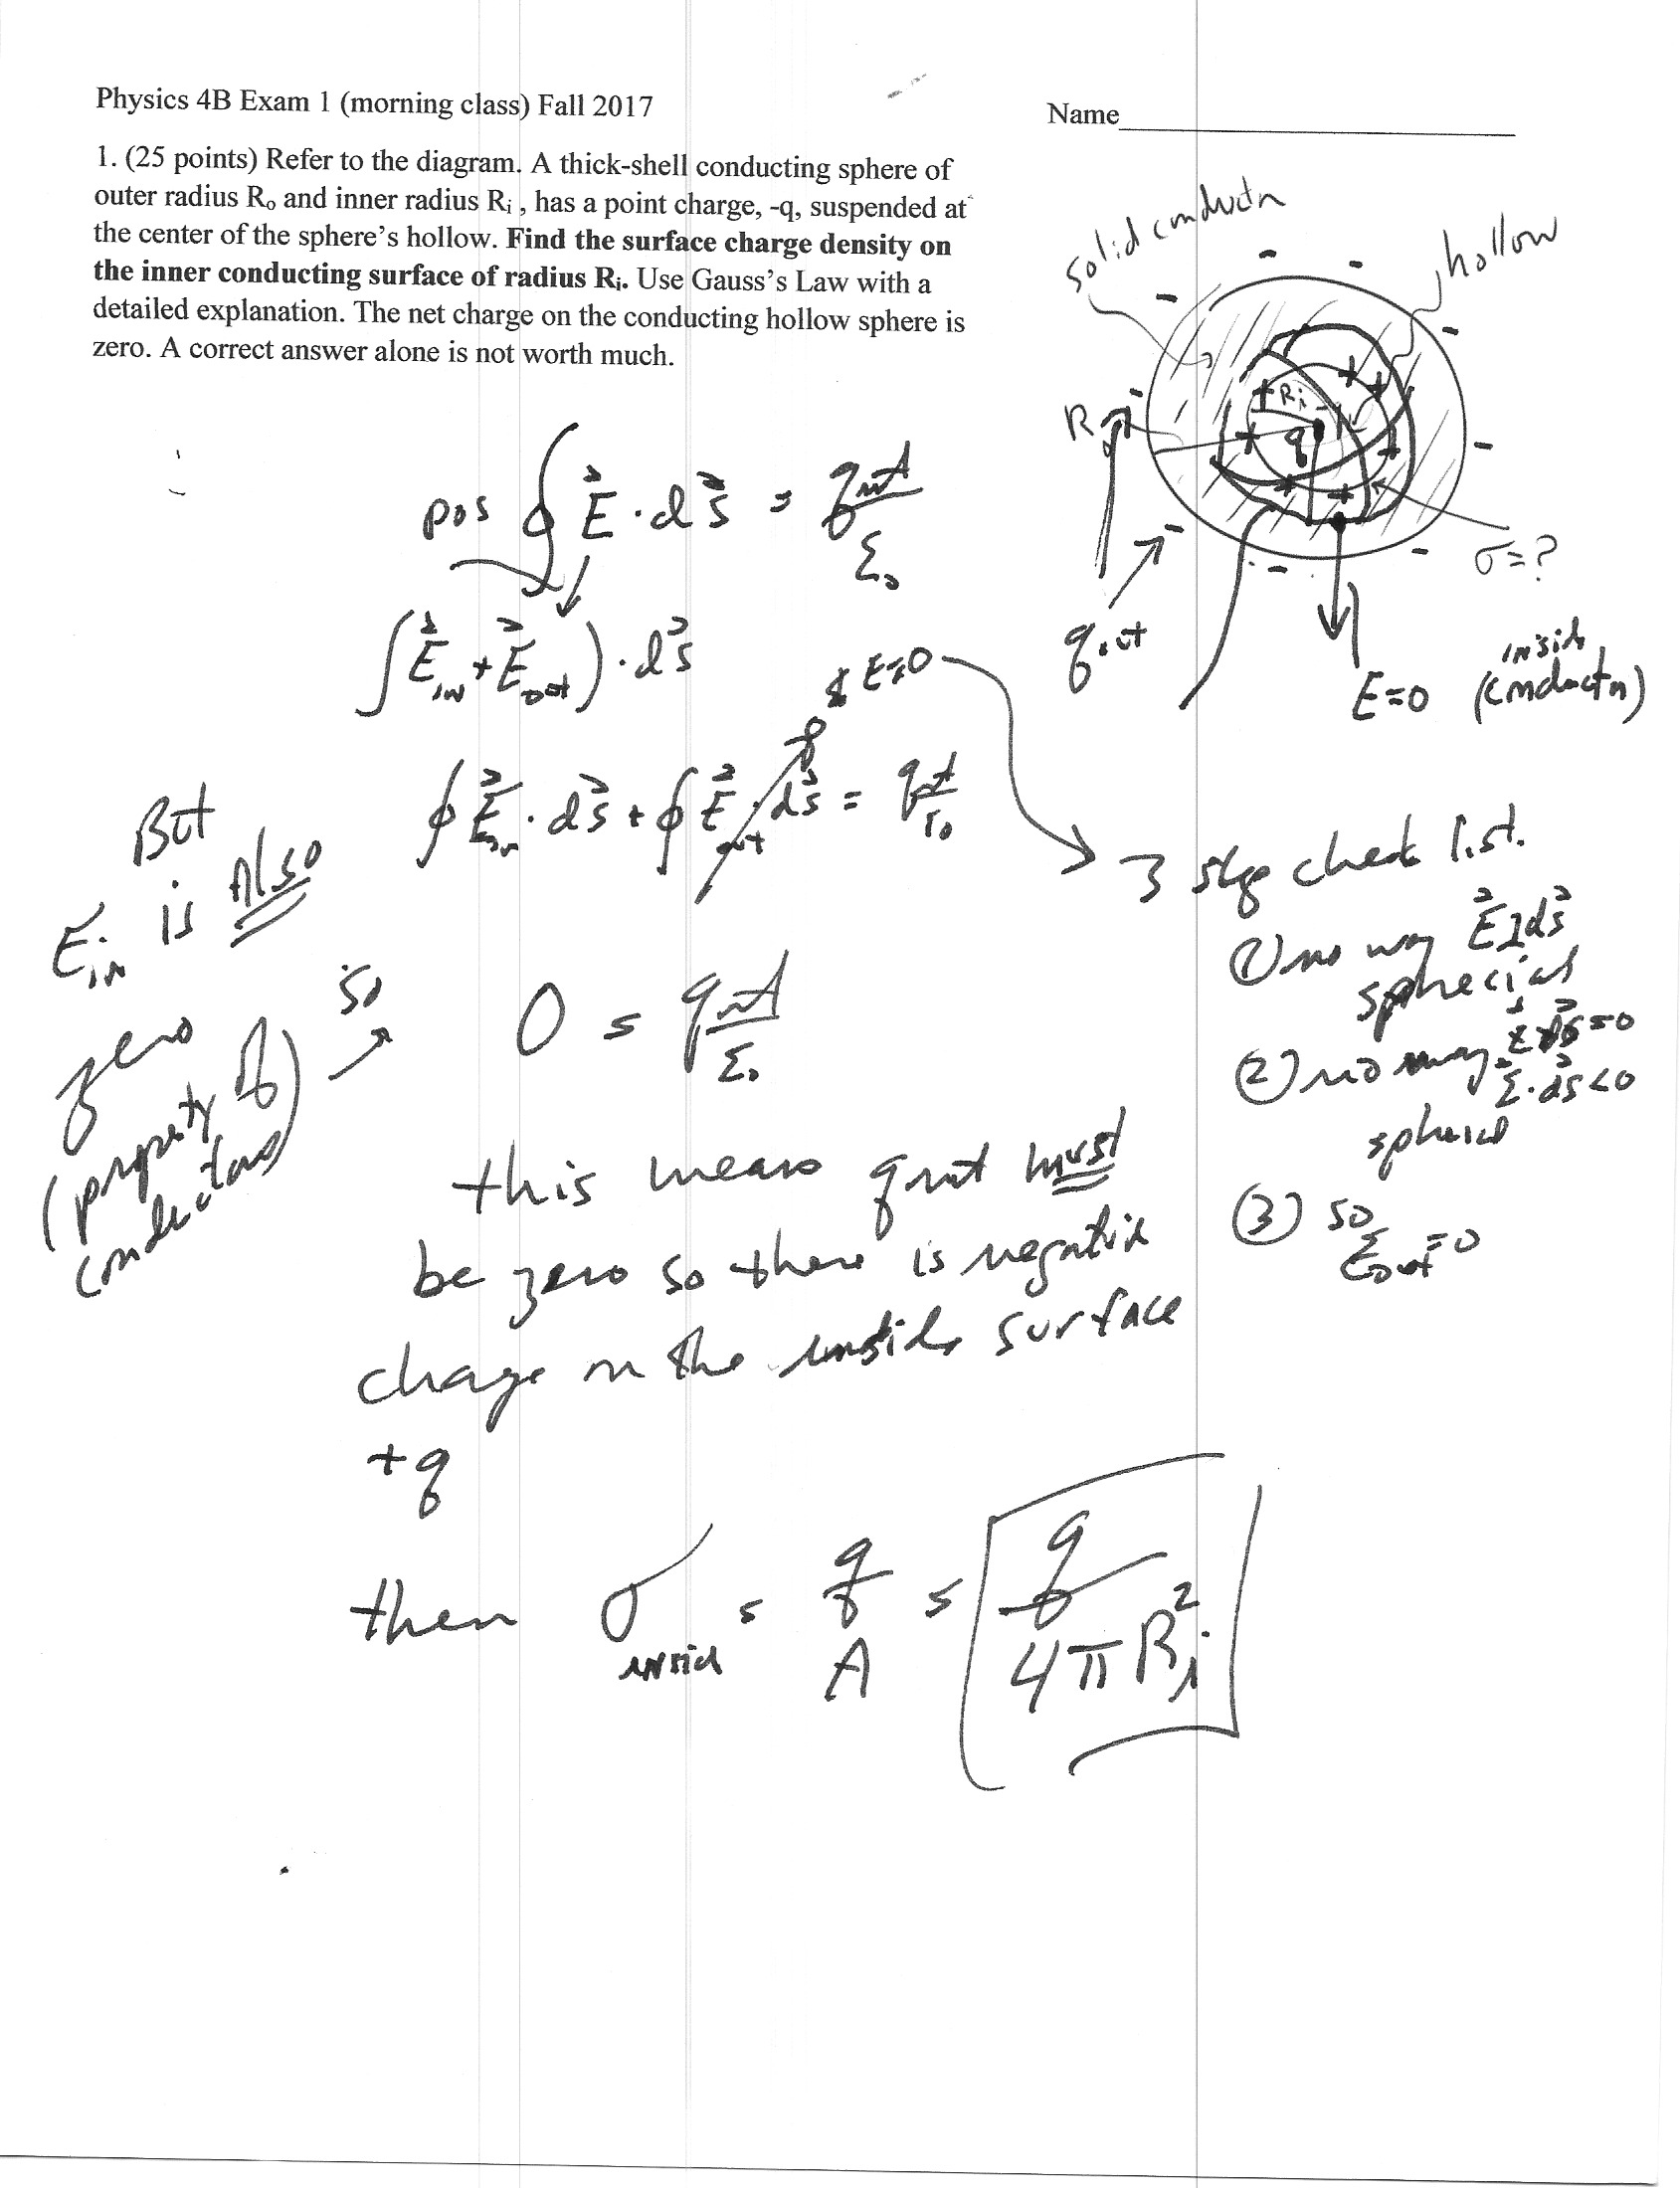 Physics 4B Exam 1 (morning class) Fall 2017
Name
1. (25 points) Refer to the diagram. A thick-shell conducting sphere of
outer radius Rₒ and inner radius Rᵢ , has a point charge, -q, suspended at
the center of the sphere's hollow. Find the surface charge density on
the inner conducting surface of radius Rᵢ. Use Gauss's Law with a
detailed explanation. The net charge on the conducting hollow sphere is
zero. A correct answer alone is not worth much.
solid conductn
hollow
Rᵢ
-q
σ=?
q out
E=0 inside (conductn)
pos ∮ E⃗ · ds⃗ = qnet/ε₀
∫(E⃗in + E⃗out) · ds⃗
E=0
∮ E⃗in · ds⃗ + ∮ E⃗out · ds⃗ = qnet/ε₀
But
Ein is Also
zero
(property of
conductors)
so
0 = qnet/ε₀
3 step check list.
① no way E⃗⊥ds⃗
spherical
② no way E⃗·ds⃗=0
E⃗·ds⃗<0
spherical
③ so
Eout=0
this means qnet must
be zero so there is negative
charge on the inside surface
+q
then σ insid = q/A = q/4πRᵢ²